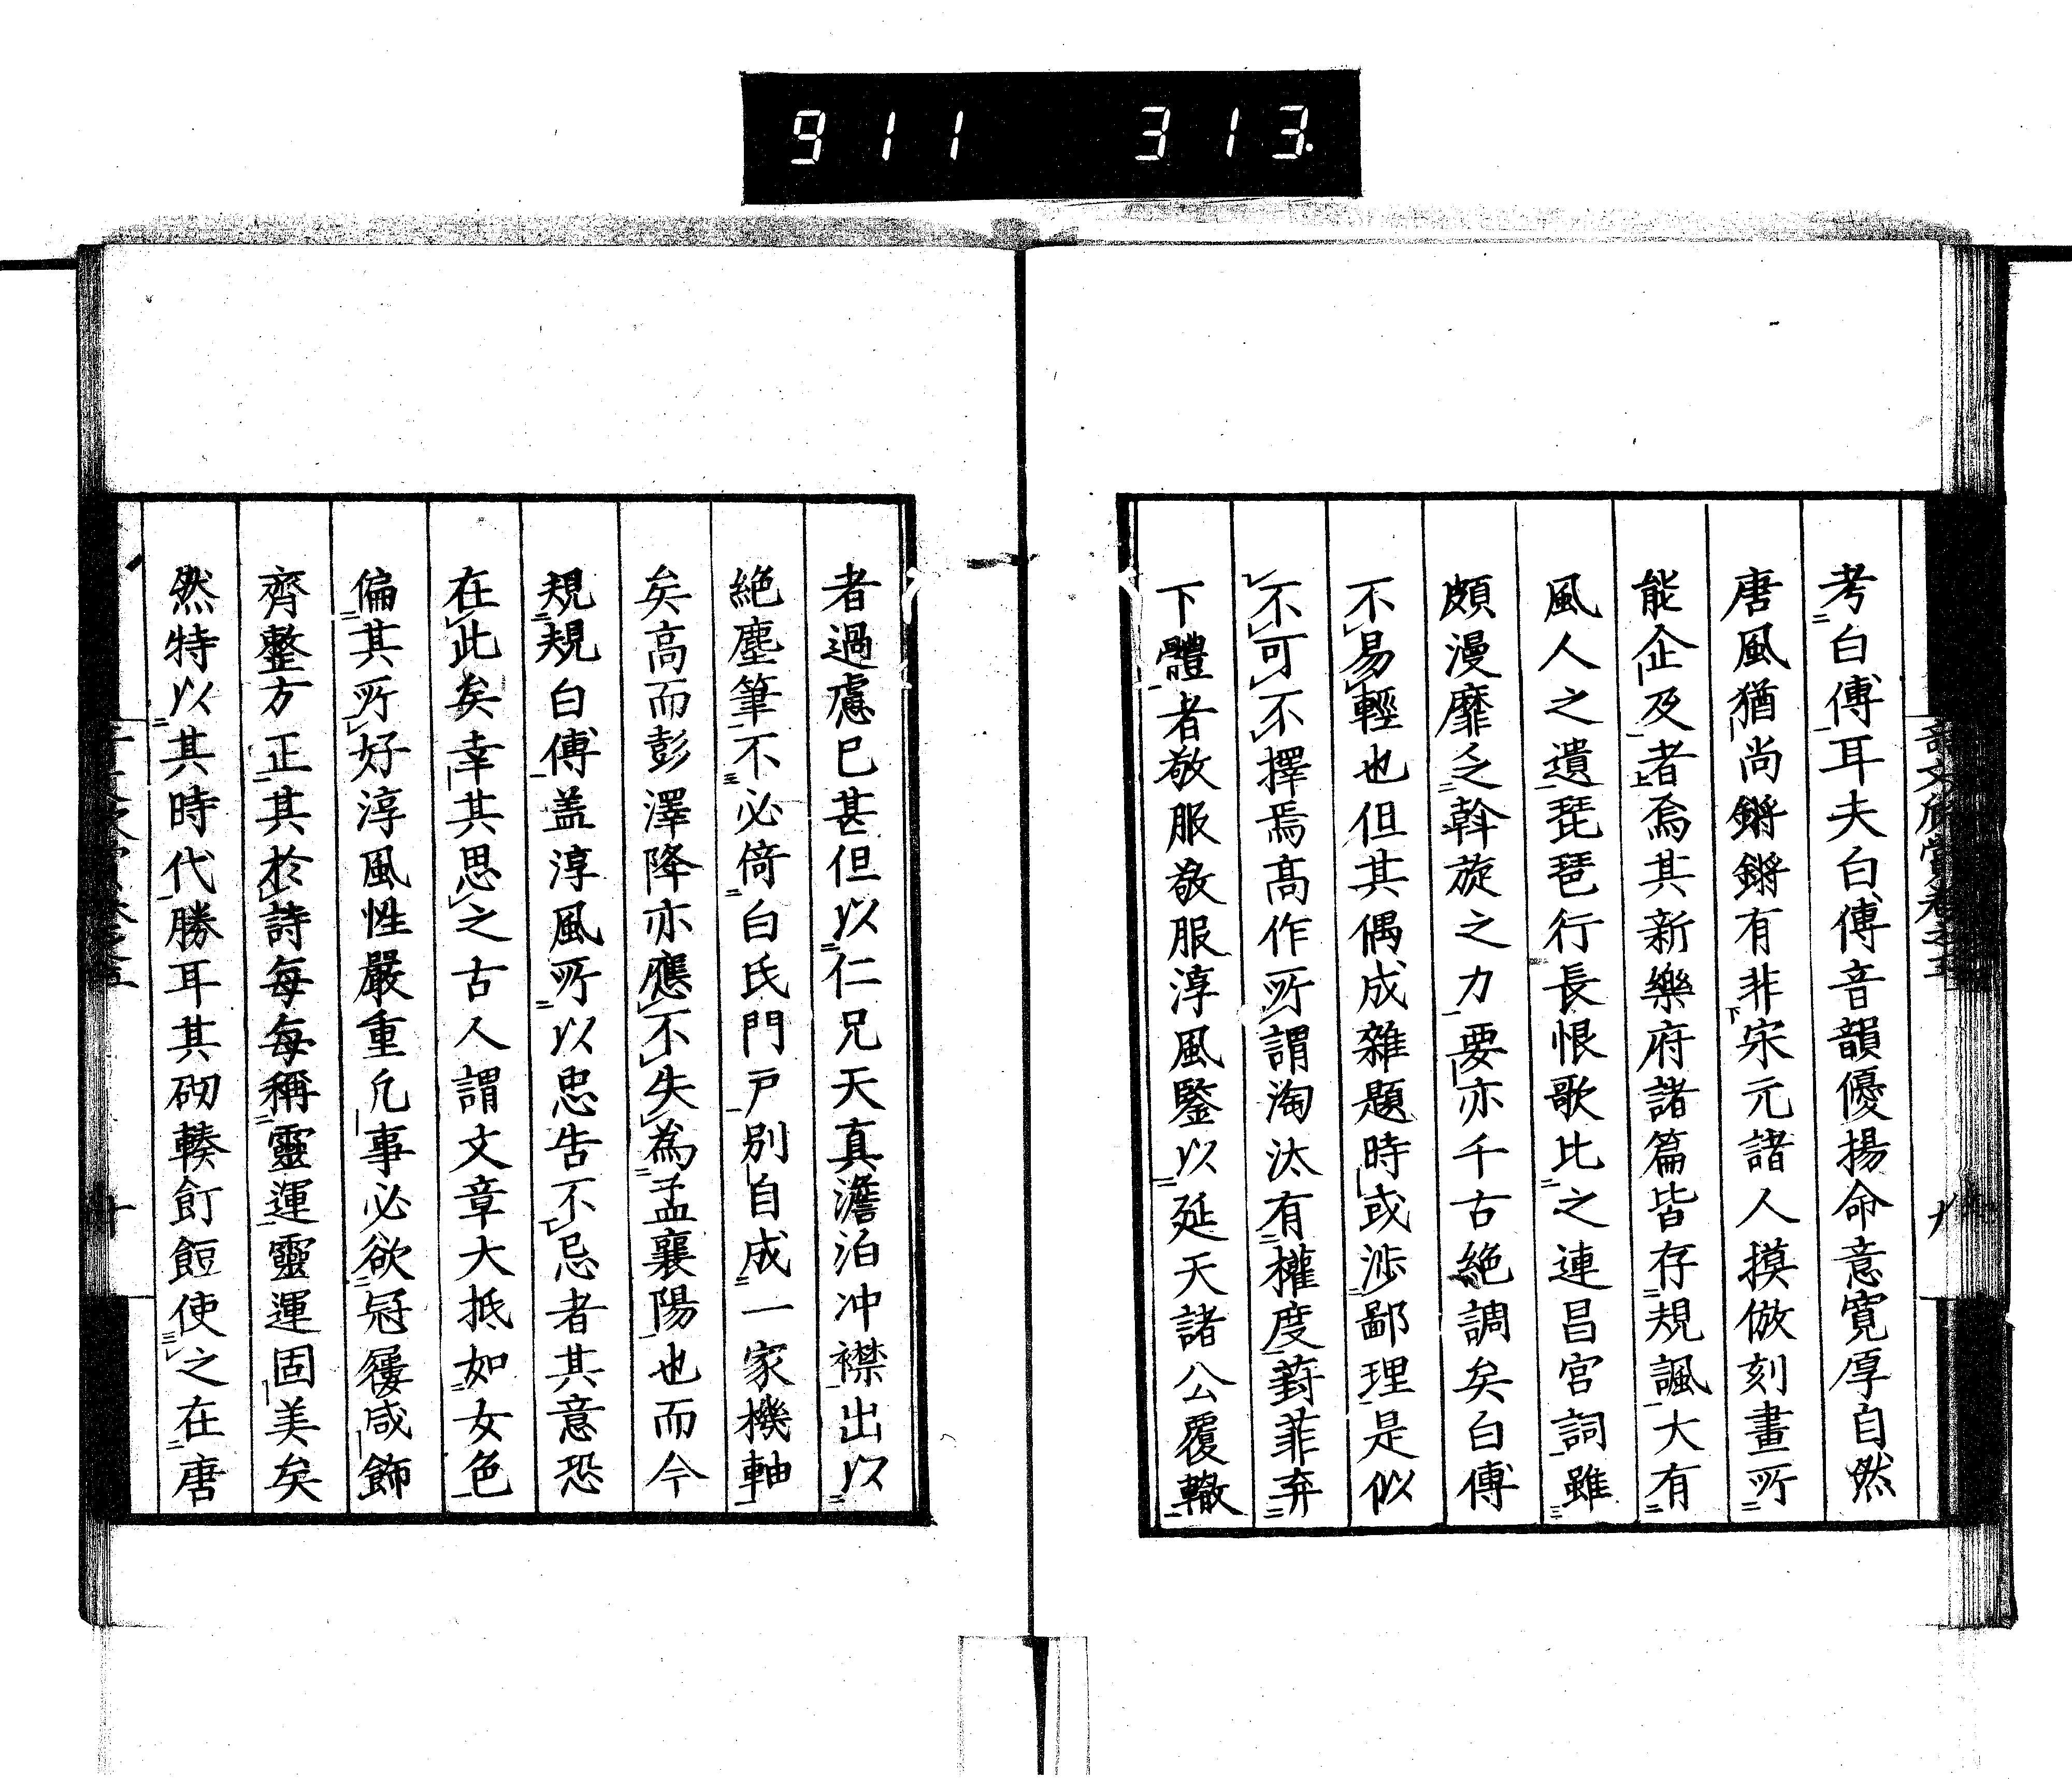 911 313.
考白傅耳夫白傅音韻優揚命意寛厚自然
唐風猶尚鏘鏘有非宋元諸人摸倣刻畫所
能企及者焉其新樂府諸篇皆存規諷大有
風人之遺琵琶行長恨歌比之連昌宮詞雖
頗漫靡之斡旋之力要亦千古絶調矣白傅
不易輕也但其偶成雜題時或渉鄙理是似
不可不擇焉高作所謂淘汰有權度葑菲弃
下體者敬服敬服淳風鑒以延天諸公覆轍
者過慮已甚但以仁兄天真澹泊冲襟出以
絶塵筆不必倚白氏門戸別自成一家機軸
矣高而彭澤降亦應不失為孟襄陽也而今
規規白傅盖淳風所以忠告不忌者其意恐
在此矣幸其思之古人謂文章大抵如女色
偏其所好淳風性嚴重凢事必欲冠屨咸飾
齊整方正其於詩每每稱靈運靈運固美矣
然特以其時代勝耳其砌輳飣餖使之在唐